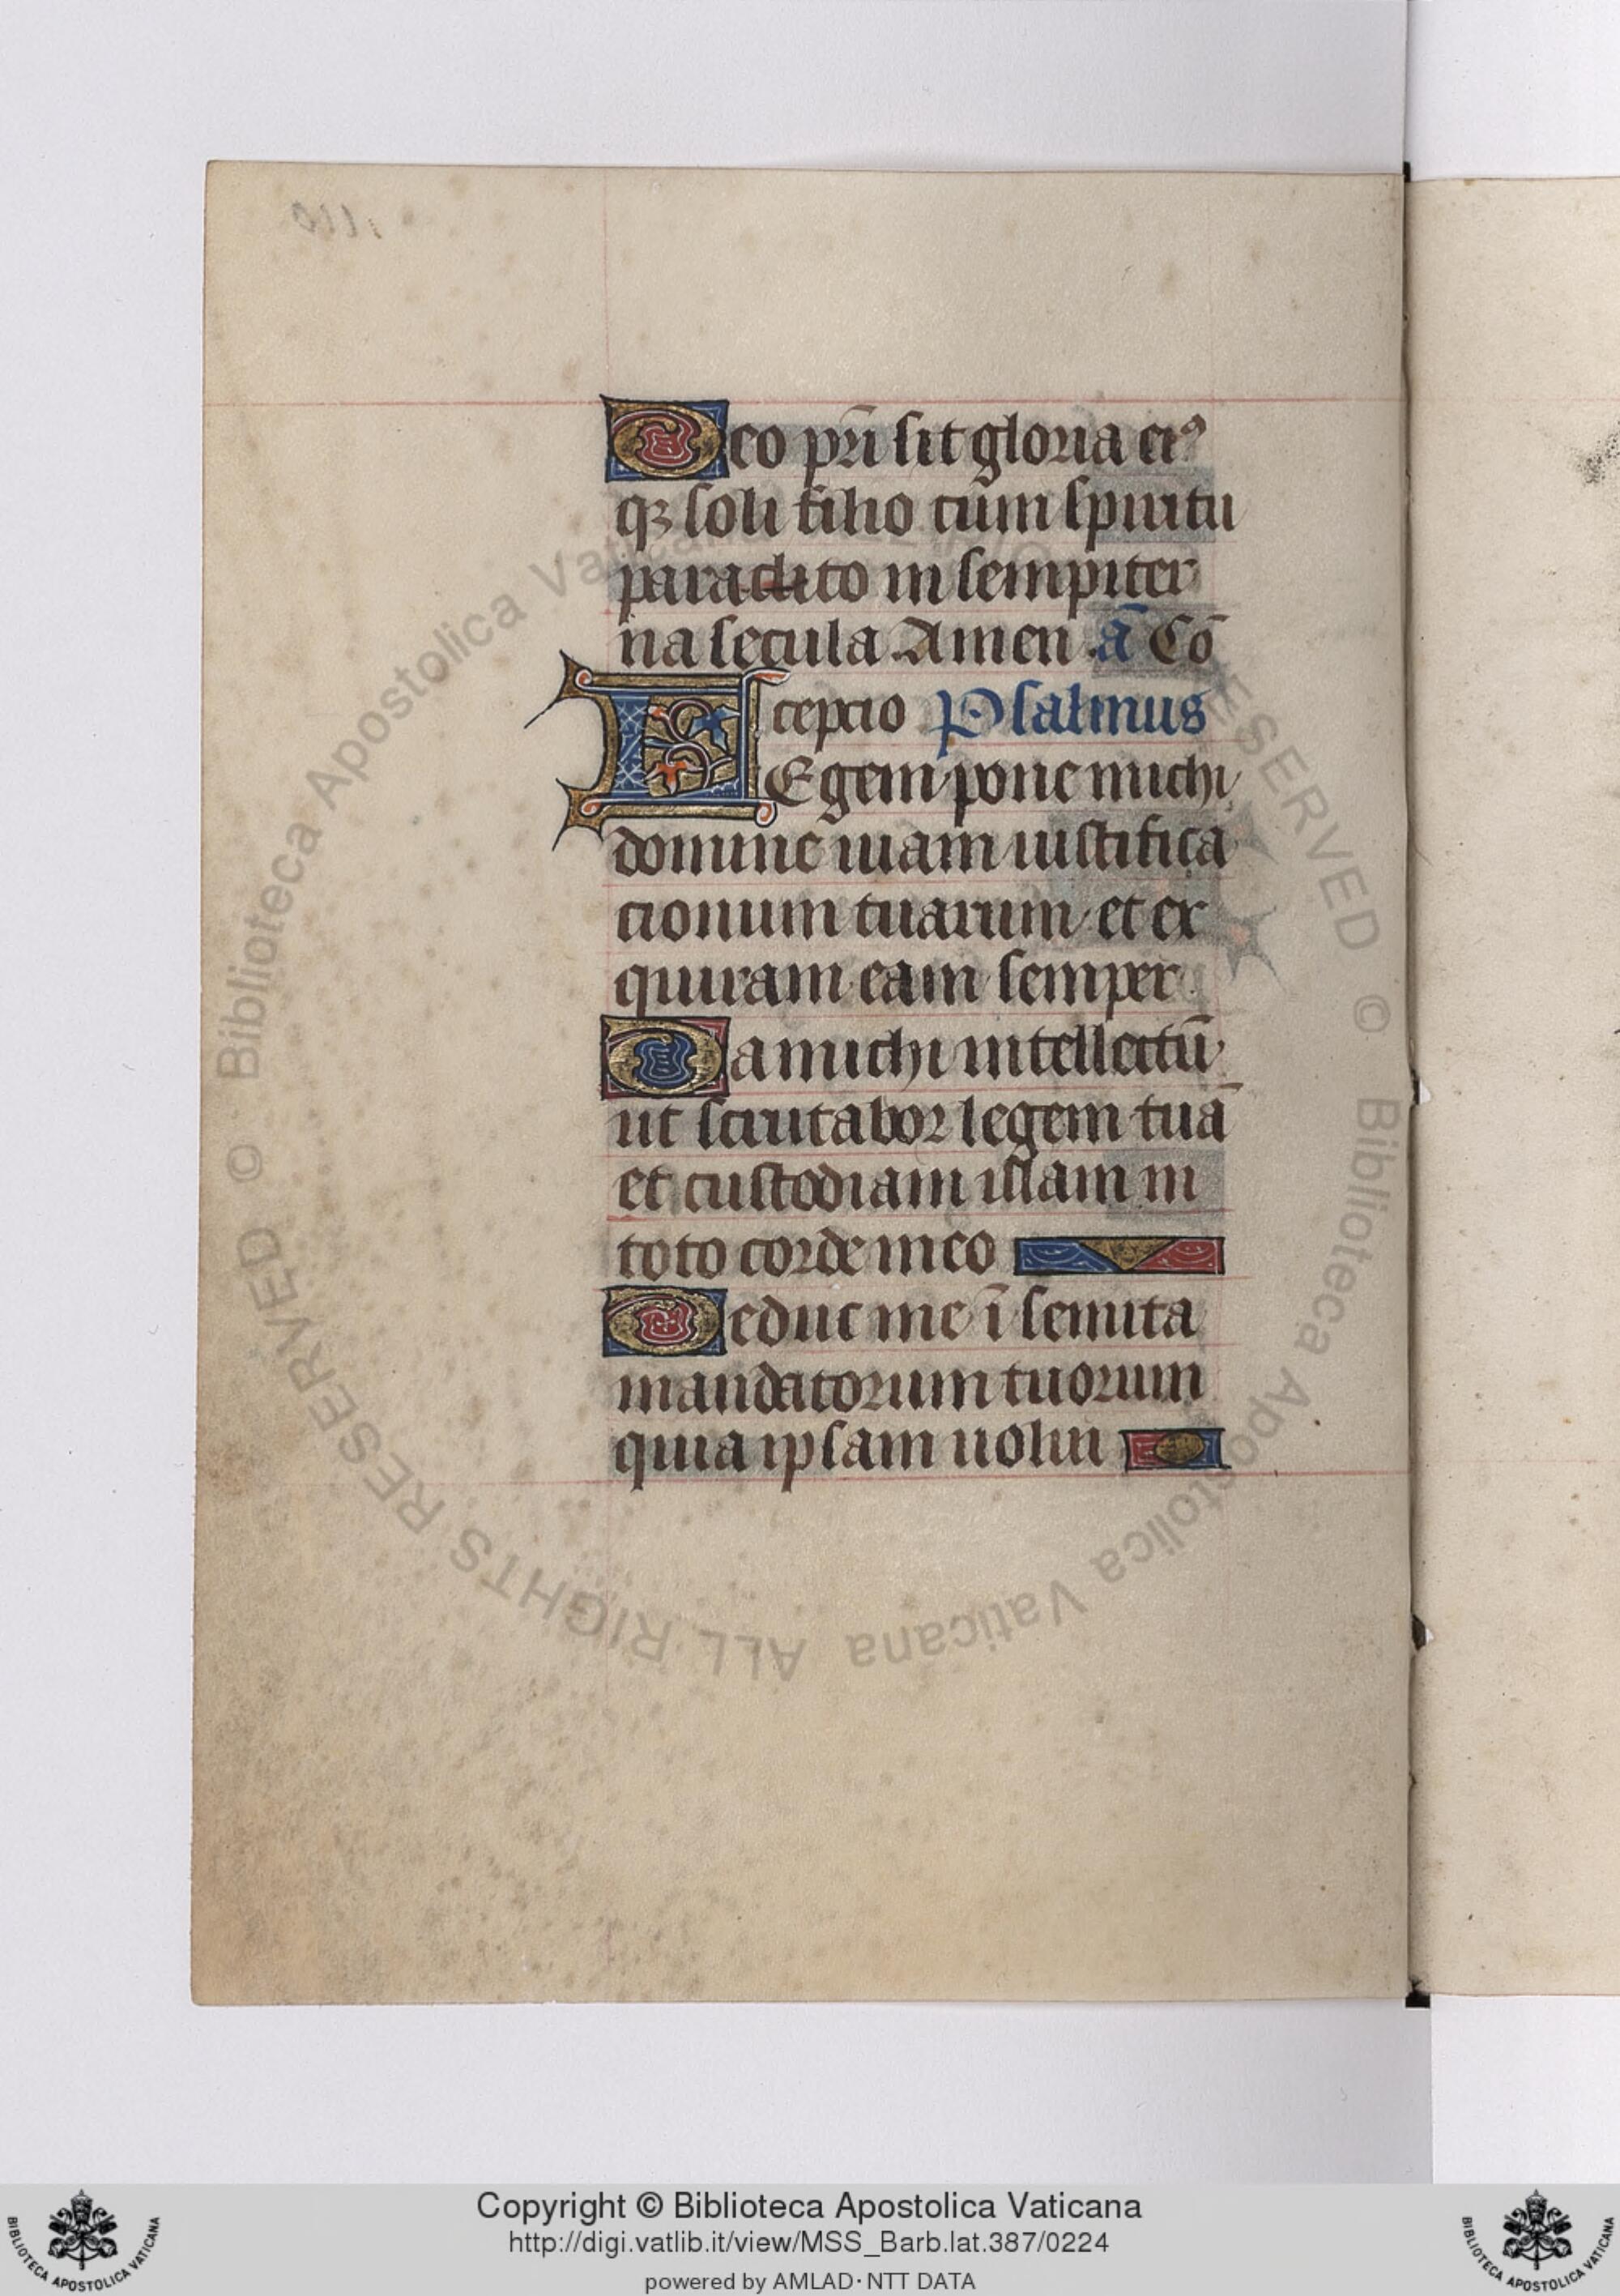 Deo pr̄i sit gloria ei⁹
qꝫ soli filio cum spiritu
paraclito in sempiter
na secula Amen. ā Cō
cepcio Psalmus
LEgem pone michi
domine uiam iustifica
cionum tuarum et ex
quiram eam semper
Da michi intellectū
ut scrutabor legem tuā
et custodiam illam in
toto corde meo
Deduc me ī semita
mandatorum tuorum
quia ipsam uolui
© Biblioteca Apostolica Vaticana ALL RIGHTS RESERVED
Copyright © Biblioteca Apostolica Vaticana
http://digi.vatlib.it/view/MSS_Barb.lat.387/0224
powered by AMLAD·NTT DATA
BIBLIOTECA APOSTOLICA VATICANA
BIBLIOTECA APOSTOLICA VATICANA